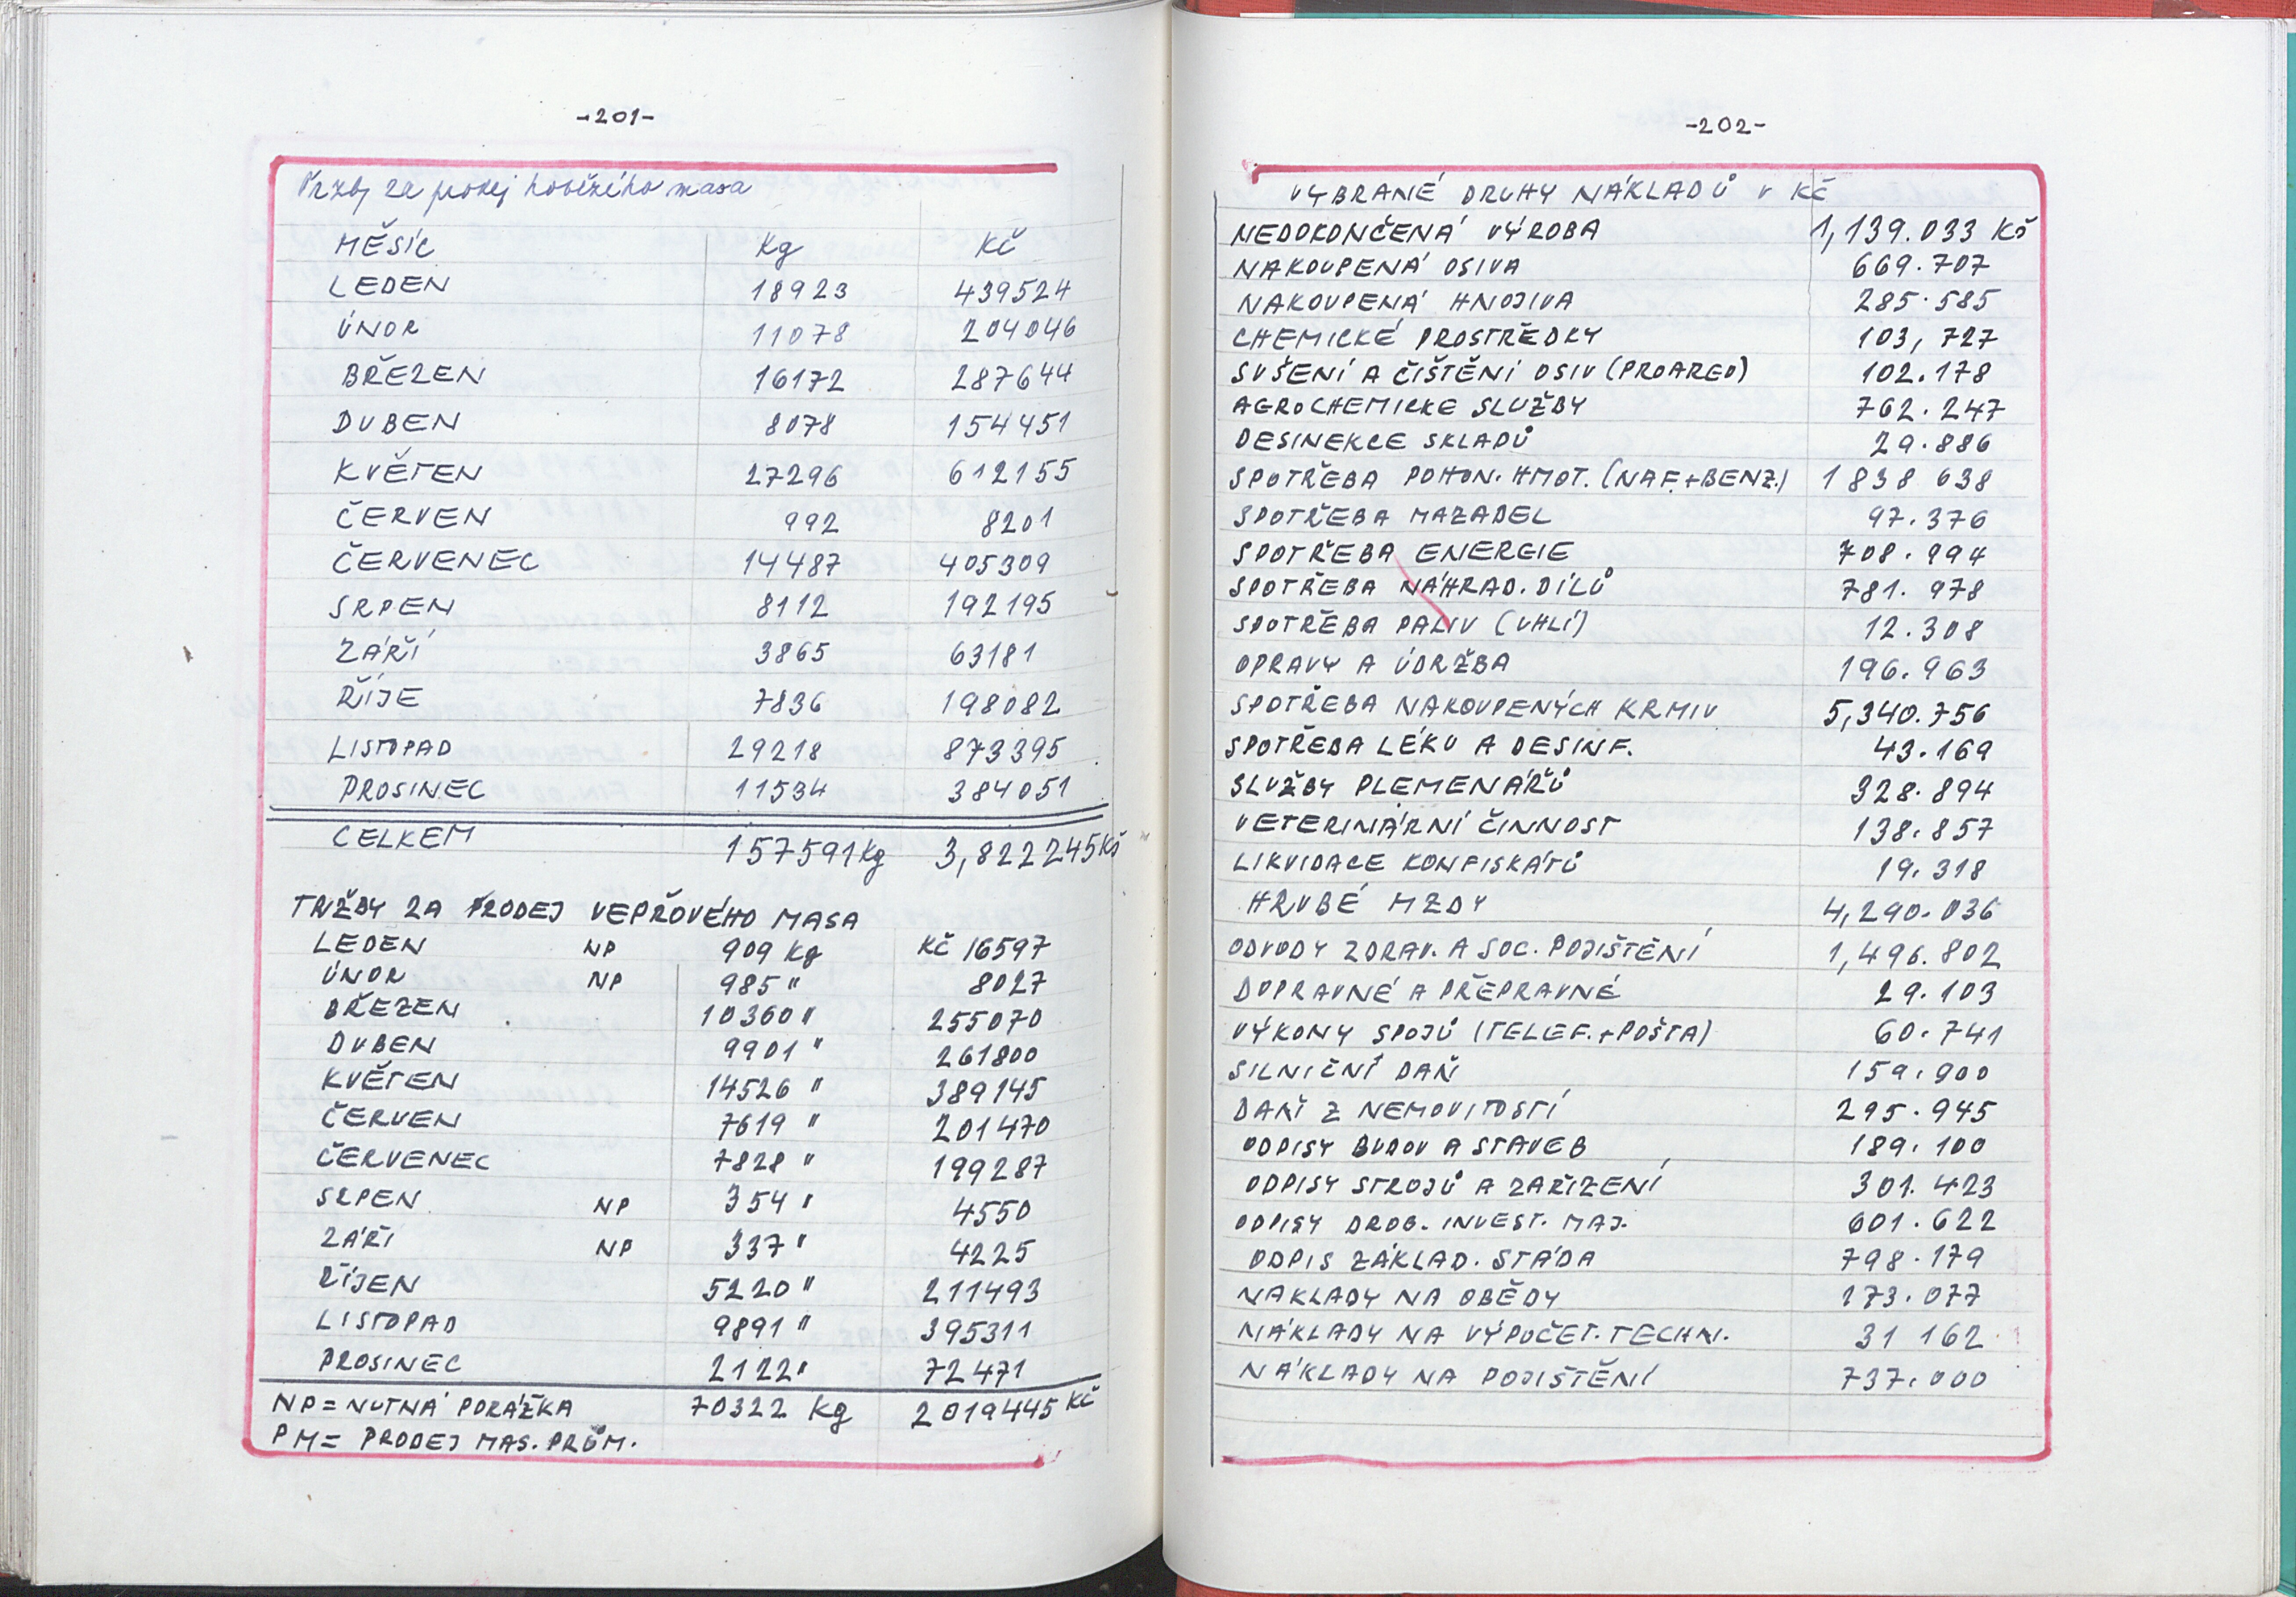 -201-
Tržby za prodej hovězího masa
MĚSÍC Kg Kč
LEDEN 18923 439524
ÚNOR 11078 204046
BŘEZEN 16172 287644
DUBEN 8078 154451
KVĚTEN 27296 612155
ČERVEN 992 8201
ČERVENEC 14487 405309
SRPEN 8112 192195
ZÁŘÍ 3865 63181
ŘÍJE 7836 198082
LISTOPAD 29218 873395
PROSINEC 11534 384051
CELKEM 157591Kg 3,822245Kč
TRŽBY ZA PRODEJ VEPŘOVÉHO MASA
LEDEN NP 909 Kg Kč 16597
ÚNOR NP 985 " 8027
BŘEZEN 10360 " 255070
DUBEN 9901 " 261800
KVĚTEN 14526 " 389145
ČERVEN 7619 " 201470
ČERVENEC 7828 " 199287
SRPEN NP 354 " 4550
ZÁŘÍ NP 337 " 4225
ŘÍJEN 5220 " 211493
LISTOPAD 9891 " 395311
PROSINEC 2122 " 72471
NP = NUTNÁ PORÁŽKA 70322 Kg 2019445 Kč
PM = PRODEJ MAS. PRŮM.
-202-
VYBRANÉ DRUHY NÁKLADŮ V KČ
NEDOKONČENÁ VÝROBA 1,139.033 Kč
NAKOUPENÁ OSIVA 669.707
NAKOUPENÁ HNOJIVA 285.585
CHEMICKÉ PROSTŘEDKY 103,727
SUŠENÍ A ČIŠTĚNÍ OSIV (PROAREO) 102.178
AGROCHEMICKE SLUŽBY 762.247
DESINEKCE SKLADŮ 29.886
SPOTŘEBA POHON. HMOT. (NAF.+BENZ.) 1838 638
SPOTŘEBA MAZADEL 97.376
SPOTŘEBA ENERGIE 708.994
SPOTŘEBA NÁHRAD. DÍLŮ 781.978
SPOTŘEBA PALIV (UHLÍ) 12.308
OPRAVY A ÚDRŽBA 196.963
SPOTŘEBA NAKOUPENÝCH KRMIV 5,340.756
SPOTŘEBA LÉKU A DESINF. 43.169
SLUŽBY PLEMENÁŘŮ 328.894
VETERINÁRNÍ ČINNOST 138.857
LIKVIDACE KONFISKÁTŮ 19.318
HRUBÉ MZDY 4,290.036
ODVODY ZDRAV. A SOC. POJIŠTĚNÍ 1,496.802
DOPRAVNÉ A PŘEPRAVNÉ 29.103
VÝKONY SPOJŮ (TELEF.+POŠTA) 60.741
SILNIČNÍ DAŇ 159.900
DAŇ Z NEMOVITOSTÍ 295.945
ODPISY BUDOV A STAVEB 189.100
ODPISY STROJŮ A ZAŘÍZENÍ 301.423
ODPISY DROB. INVEST. MAJ. 601.622
ODPIS ZÁKLAD. STÁDA 798.179
NAKLADY NA OBĚDY 173.077
NÁKLADY NA VÝPOČET. TECHN. 31 162
NÁKLADY NA POJIŠTĚNÍ 737.000